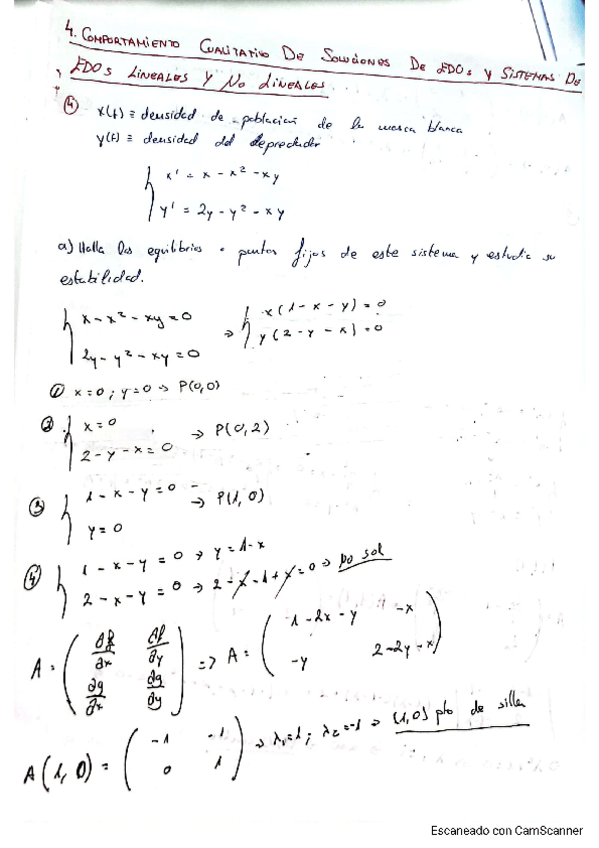 4. COMPORTAMIENTO CUALITATIVO DE SOLUCIONES DE EDOs Y SISTEMAS DE
EDOs LINEALES Y NO LINEALES.
④ x(t) ≡ densidad de población de la mosca blanca
y(t) ≡ densidad del depredador
{ x' = x - x² - xy
y' = 2y - y² - xy
a) Halla los equilibrios o puntos fijos de este sistema y estudia su
estabilidad.
{ x - x² - xy = 0 → { x(1 - x - y) = 0
2y - y² - xy = 0 y(2 - y - x) = 0
① x = 0 ; y = 0 → P(0,0)
② { x = 0
2 - y - x = 0 → P(0,2)
③ { 1 - x - y = 0 → P(1,0)
y = 0
④ { 1 - x - y = 0 → y = 1 - x
2 - x - y = 0 → 2 - x - 1 + x = 0 → no sol
A = ( ∂f/∂x ∂f/∂y ∂g/∂x ∂g/∂y ) => A = ( 1 - 2x - y -x -y 2 - 2y - x )
A(1,0) = ( -1 -1 0 1 ) → λ₁ = 1 ; λ₂ = -1 → (1,0) pto de silla
Escaneado con CamScanner